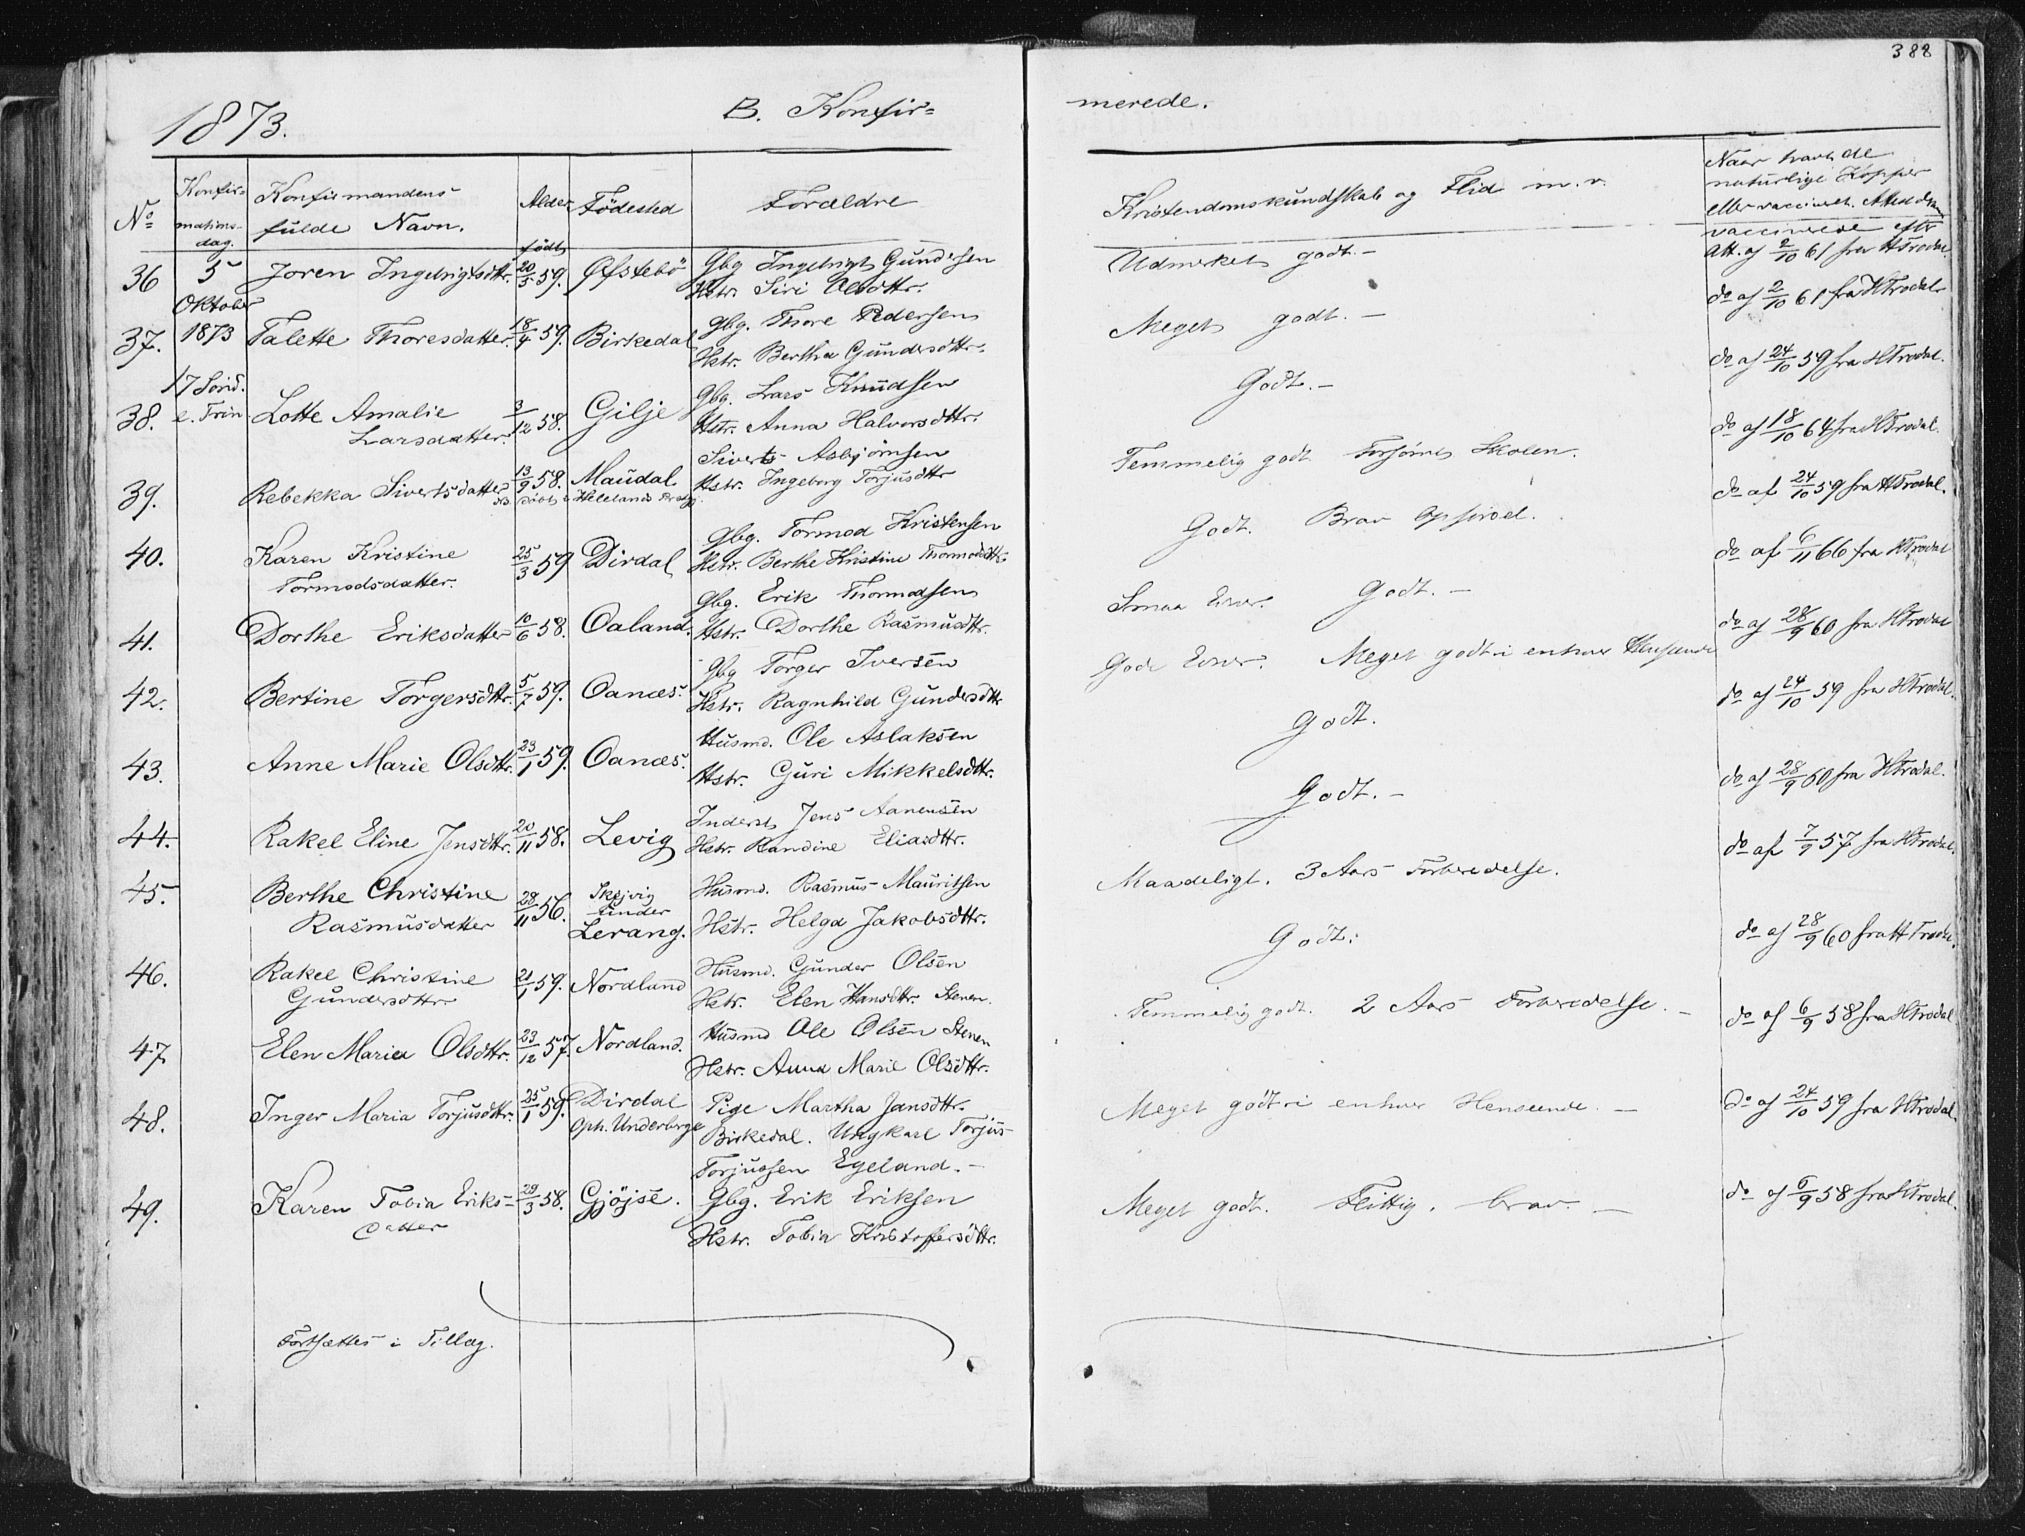 388
1873.
B. Konfir=
merede.
No
Konfir=
mations-
dag.
Konfirmandens
fulde Navn.
Alder
født
Fødested
Forældre
Kristendomskundskab og Flid m. v.
Naar havt de
naturlige Kopper
eller vaccineret. Med dem
vaccinerede efter
36 5 Joren Ingebrigtsdttr. 20/5 59. Øfstebö Gbg Ingebrigt Gundersen
Oktober Hstr. Siri Olsdttr.
Udmerket godt.- Att. af 2/10 61 fra HTrodal
37. 1873 Talette Thoresdatter 18/4 59. Birkedal Gbg. Thore Pedersen
Hstr. Bertha Gundersdttr.
Meget godt.- do af 2/10 61 fra HTrodal
17 Sønd.
38. e. Trin Lotte Amalie 3/12 58. Gilje Gbg. Lars Knudsen
Larsdatter. Hstr. Anna Halvorsdttr.
Godt.- do af 24/10 59 fra HTrodal.
39. Rebekka Sivertsdatter 13/9 58. Maudal Siverts Asbjørnsen
døbt i Hellelands Prstgj. Hstr. Ingeborg Torjusdttr
Temmelig godt Forsømt Skolen. do af 18/10 64 fra HTrodal.
40. Karen Kristine 25/3 59 Dirdal Gbg. Tormod Kristensen
Tormodsdatter. Hstr. Berthe Kristine Thormodsdttr.
Godt. Brav Opførsel. do af 24/10 59 fra HTrodal.
41. Dorthe Eriksdatter 10/6 58. Oaland. Gbg. Erik Thormodsen
Hstr. Dorthe Rasmusdttr.
Smaa Evner. Godt.- do af 6/11 66 fra HTrodal
42. Bertine Torgersdttr. 5/7 59. Oanæs. Gbg Torger Iversen
Hstr. Ragnhild Gundersdttr
Gode Evner. Meget godt i enhver Henseende do af 28/9 60 fra HTrodal
43. Anne Marie Olsdttr. 23/1 59. Oanæs. Husmd. Ole Aslaksen
Hstr. Guri Mikkelsdttr.
Godt. do af 24/10 59 fra HTrodal.
44. Rakel Eline Jensdttr. 20/11 58. Levig Inderst Jens Aanensen
Hstr. Randine Eliasdttr.
Godt.- do af 28/9 60 fra HTrodal.
45. Berthe Christine 28/11 56. Skejvig Husmd. Rasmus Mauritsen
Rasmusdatter under
Lerang. Hstr. Helga Jakobsdttr.
Maadeligt. 3 Aars Forberedelse. do af 7/9 57 fra HTrodal.
46. Rakel Christine 21/1 59. Nordland Husmd. Gunder Olsen
Gundersdttr. Hstr. Elen Hansdttr. Stenen.
Godt: do af 28/9 60 fra HTrodal.
47 Elen Maria Olsdttr. 23/12 57. Nordland. Husmd Ole Olsen Stenen
Hstr. Anna Marie Olsdttr.
Temmelig godt. 2 Aars Forberedelse.- do af 6/9 58 fra HTrodal
48. Inger Maria Torjusdttr. 25/1 59. Dirdal Pige Martha Jansdttr.
Oph. Underberge Birkedal. Ungkarl Torjus
Torjussen Egeland.-
Meget godt i enhver Henseende.- do af 24/10 59 fra HTrodal.
49. Karen Tobia Eriks- 29/3 58. Gjøjse. Gbg. Erik Eriksen
datter Hstr. Tobia Kristoffersdttr.
Meget godt. Flittig. brav.- do af 6/9 58 fra HTrodal.
Fortsættes i Tillæg.